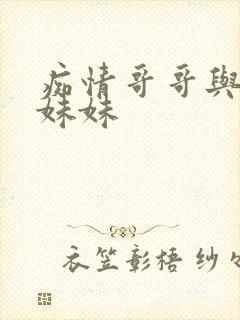 痴情哥哥與
妹妹
衣笠彰梧 纱